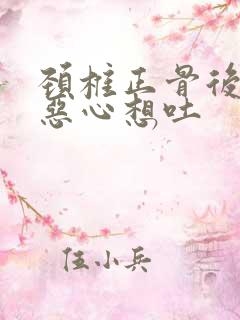 頚椎正骨後
惡心想吐
任小兵